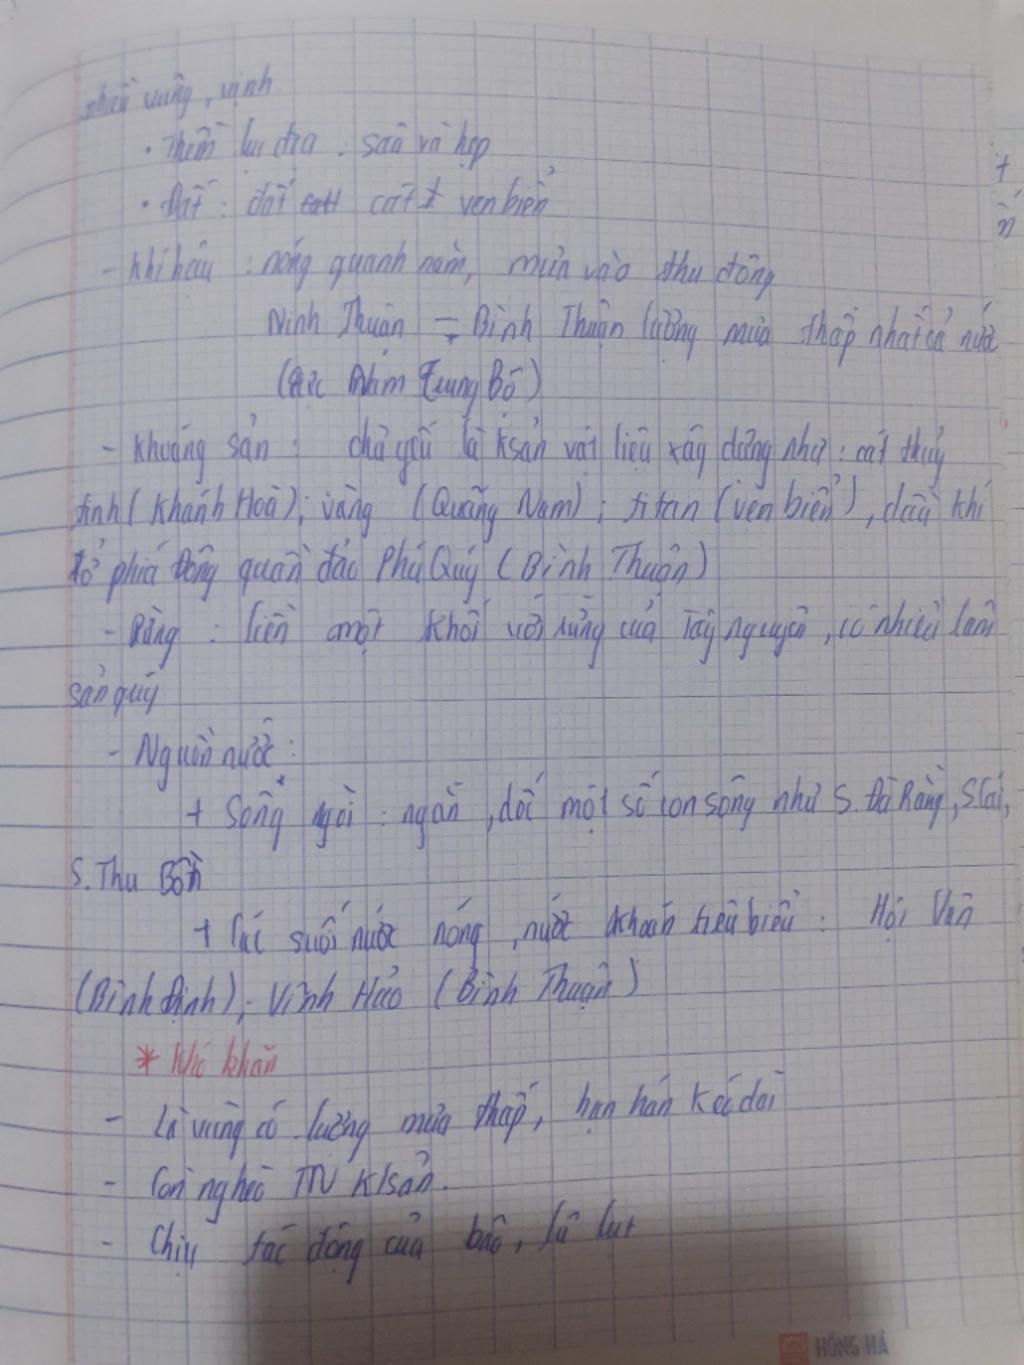 nhiều vũng, vịnh
· Thềm lục địa : sâu và hẹp
· Đất : đất cát ven biển
- Khí hậu : nóng quanh năm, mưa vào thu đông
Ninh Thuận - Bình Thuận lượng mưa thấp nhất cả nước
(Cực Nam Trung Bộ)
- Khoáng sản : chủ yếu là k/sản vật liệu xây dựng như : cát thuỷ
tinh ( Khánh Hoà ) ; vàng ( Quảng Nam ) ; titan ( ven biển ) , dầu khí
ở phía Đông quần đảo Phú Quý ( Bình Thuận )
- Rừng : liền một khối với rừng của Tây nguyên , có nhiều lâm
sản quý
- Nguồn nước :
+ Sông ngòi : ngắn , dốc một số con sông như S. Đà Rằng , S Cái ,
S. Thu Bồn
+ Các suối nước nóng , nước khoáng tiêu biểu : Hội Vân
( Bình Định ) ; Vĩnh Hảo ( Bình Thuận )
* Khó khăn
- Là vùng có lượng mưa thấp , hạn hán kéo dài
- Còn nghèo TN K/sản .
- Chịu tác động của bão , lũ lụt
HỒNG HÀ